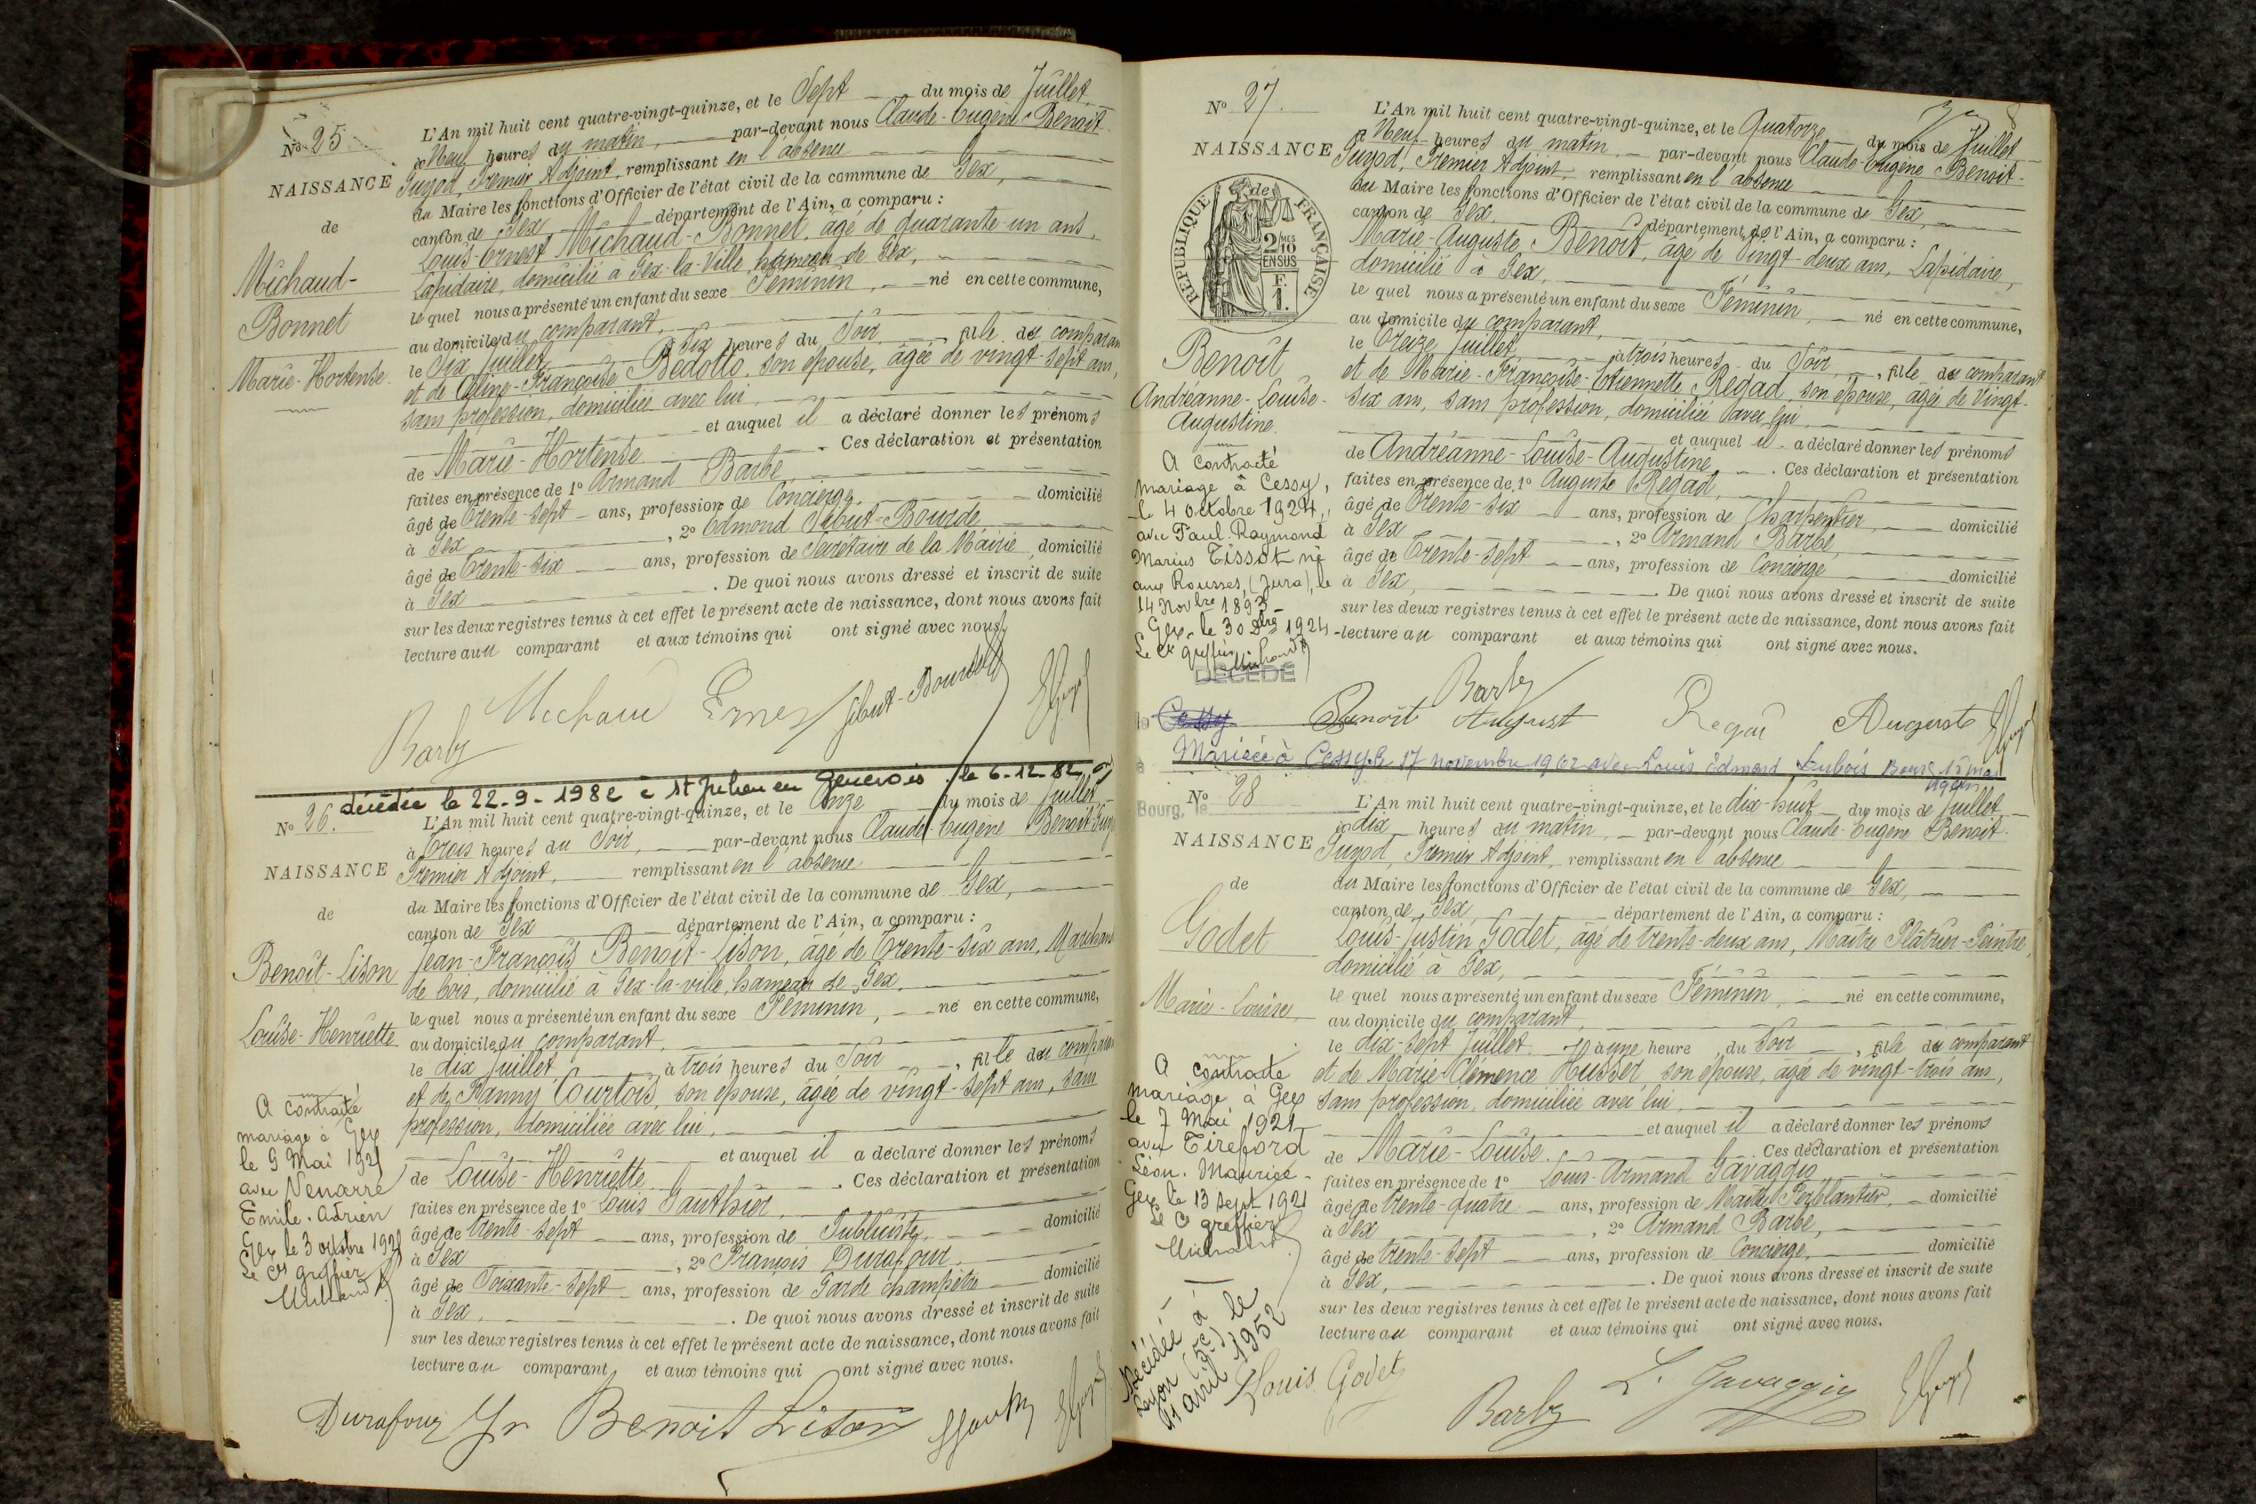 N° 25
NAISSANCE
de
Michaud-
Bonnet
Marie-Hortense.
L'An mil huit cent quatre-vingt-quinze, et le Sept du mois de Juillet
à Neuf heures du matin, par-devant nous Claude-Eugène Benoit-
Guyod, Premier Adjoint, remplissant en l'absence
du Maire les fonctions d'Officier de l'état civil de la commune de Gex,
canton de Gex département de l'Ain, a comparu :
Louis-Ernest Michaud-Bonnet, âgé de quarante-un ans,
Lapidaire, domicilié à Gex-la-Ville, hameau de Gex,
le quel nous a présenté un enfant du sexe Féminin, né en cette commune,
au domicile du comparant,
le Six Juillet Six heures du Soir, fille du comparant
et de Aline-Françoise Bedollo, son épouse, âgée de vingt-sept ans,
sans profession, domiciliée avec lui,
et auquel il a déclaré donner les prénoms
de Marie-Hortense. Ces déclaration et présentation
faites en présence de 1° Armand Barbe
âgé de Trente-sept ans, profession de Concierge, domicilié
à Gex, 2° Edmond Sibut-Bourde,
âgé de Trente-six ans, profession de Secrétaire de la Mairie, domicilié
à Gex. De quoi nous avons dressé et inscrit de suite
sur les deux registres tenus à cet effet le présent acte de naissance, dont nous avons fait
lecture au comparant et aux témoins qui ont signé avec nous.
Barbe Michaud Ernest Sibut-Bourde
décédée le 22-9-1982 à St Julien en Genevois. le 6-12-82
N° 26.
NAISSANCE
de
Benoît-Lison
Louise-Henriette
A contracté
mariage à Gex
le 9 Mai 1921
avec Venarre
Emile. Adrien
Gex le 3 octobre 1921
Le Cs greffier
L'An mil huit cent quatre-vingt-quinze, et le Onze du mois de Juillet
à Trois heures du Soir, par-devant nous Claude-Eugène Benoit-Guyod
Premier Adjoint, remplissant en l'absence
du Maire les fonctions d'Officier de l'état civil de la commune de Gex,
canton de Gex département de l'Ain, a comparu :
Jean-François Benoît-Lison, âgé de Trente-six ans, Marchand
de bois, domicilié à Gex-la-ville, hameau de Gex,
le quel nous a présenté un enfant du sexe Féminin, né en cette commune,
au domicile du comparant,
le dix Juillet à trois heures du Soir, fille du comparant
et de Fanny Courtois, son épouse, âgée de vingt-sept ans, sans
profession, domiciliée avec lui,
et auquel il a déclaré donner les prénoms
de Louise-Henriette. Ces déclaration et présentation
faites en présence de 1° Louis Gauthier,
âgé de trente-sept ans, profession de Publiciste, domicilié
à Gex, 2° François Durafour,
âgé de Soixante-sept ans, profession de Garde champêtre domicilié
à Gex,. De quoi nous avons dressé et inscrit de suite
sur les deux registres tenus à cet effet le présent acte de naissance, dont nous avons fait
lecture au comparant et aux témoins qui ont signé avec nous.
Durafour Jn Benoit Lison
8
N° 27.
NAISSANCE
de
RÉPUBLIQUE FRANÇAISE
2/10 MES
EN SUS
F.
1.
Benoît
Andréanne-Louise-
Augustine.
A contracté
mariage à Cessy,
le 4 octobre 1924,
avec Paul Raymond
Marius Tissot né
aux Rousses, (Jura), le
14 Novbre 1893
Gex, le 30 Xbre 1924
Le Cs greffier
DÉCÉDÉ
Cessy
L'An mil huit cent quatre-vingt-quinze, et le Quatorze du mois de Juillet
à Neuf heures du matin, par-devant nous Claude-Eugène Benoit-
Guyod, Premier Adjoint, remplissant en l'absence
du Maire les fonctions d'Officier de l'état civil de la commune de Gex,
canton de Gex, département de l'Ain, a comparu :
Marie-Auguste Benoît, âgé de vingt-deux ans, Lapidaire,
domicilié à Gex,
le quel nous a présenté un enfant du sexe Féminin, né en cette commune,
au domicile du comparant,
le Treize Juillet à trois heures du Soir, fille du comparant
et de Marie-Françoise-Etiennette Regad, son épouse, âgée de vingt-
six ans, sans profession, domiciliée avec lui,
et auquel il a déclaré donner les prénoms
de Andréanne-Louise-Augustine. Ces déclaration et présentation
faites en présence de 1° Auguste Regad,
âgé de Trente-six ans, profession de Charpentier, domicilié
à Gex, 2° Armand Barbe,
âgé de Trente-sept ans, profession de Concierge domicilié
à Gex,. De quoi nous avons dressé et inscrit de suite
sur les deux registres tenus à cet effet le présent acte de naissance, dont nous avons fait
lecture au comparant et aux témoins qui ont signé avec nous.
Barbe
Benoît August Regad Auguste
Mariée à Cessy le 17 novembre 1962 avec Louis Edmond Dubois
Bourg, le
N° 28
NAISSANCE
de
Godet
Marie-Louise,
A contracté
mariage à Gex
le 7 Mai 1921
avec Tireford
Léon. Maurice
Gex le 13 Sept 1921
Le Cs greffier
Décédée à
Lyon (5e) le
11 avril 1952
L'An mil huit cent quatre-vingt-quinze, et le dix-huit du mois de Juillet
à dix heures du matin, par-devant nous Claude-Eugène Benoit-
Guyod, Premier Adjoint, remplissant en l'absence
du Maire les fonctions d'Officier de l'état civil de la commune de Gex,
canton de Gex, département de l'Ain, a comparu :
Louis-Justin Godet, âgé de trente-deux ans, Maître Plâtrier-Peintre,
domicilié à Gex,
le quel nous a présenté un enfant du sexe Féminin, né en cette commune,
au domicile du comparant,
le dix-sept Juillet à une heure du Soir, fille du comparant
et de Marie-Clémence Husser, son épouse, âgée de vingt-trois ans,
sans profession, domiciliée avec lui,
et auquel il a déclaré donner les prénoms
de Marie-Louise. Ces déclaration et présentation
faites en présence de 1° Louis-Armand Gavaggio
âgé de trente-quatre ans, profession de Maître Ferblantier, domicilié
à Gex, 2° Armand Barbe,
âgé de trente-sept ans, profession de Concierge, domicilié
à Gex,. De quoi nous avons dressé et inscrit de suite
sur les deux registres tenus à cet effet le présent acte de naissance, dont nous avons fait
lecture au comparant et aux témoins qui ont signé avec nous.
Louis Godet Barbe L. Gavaggio